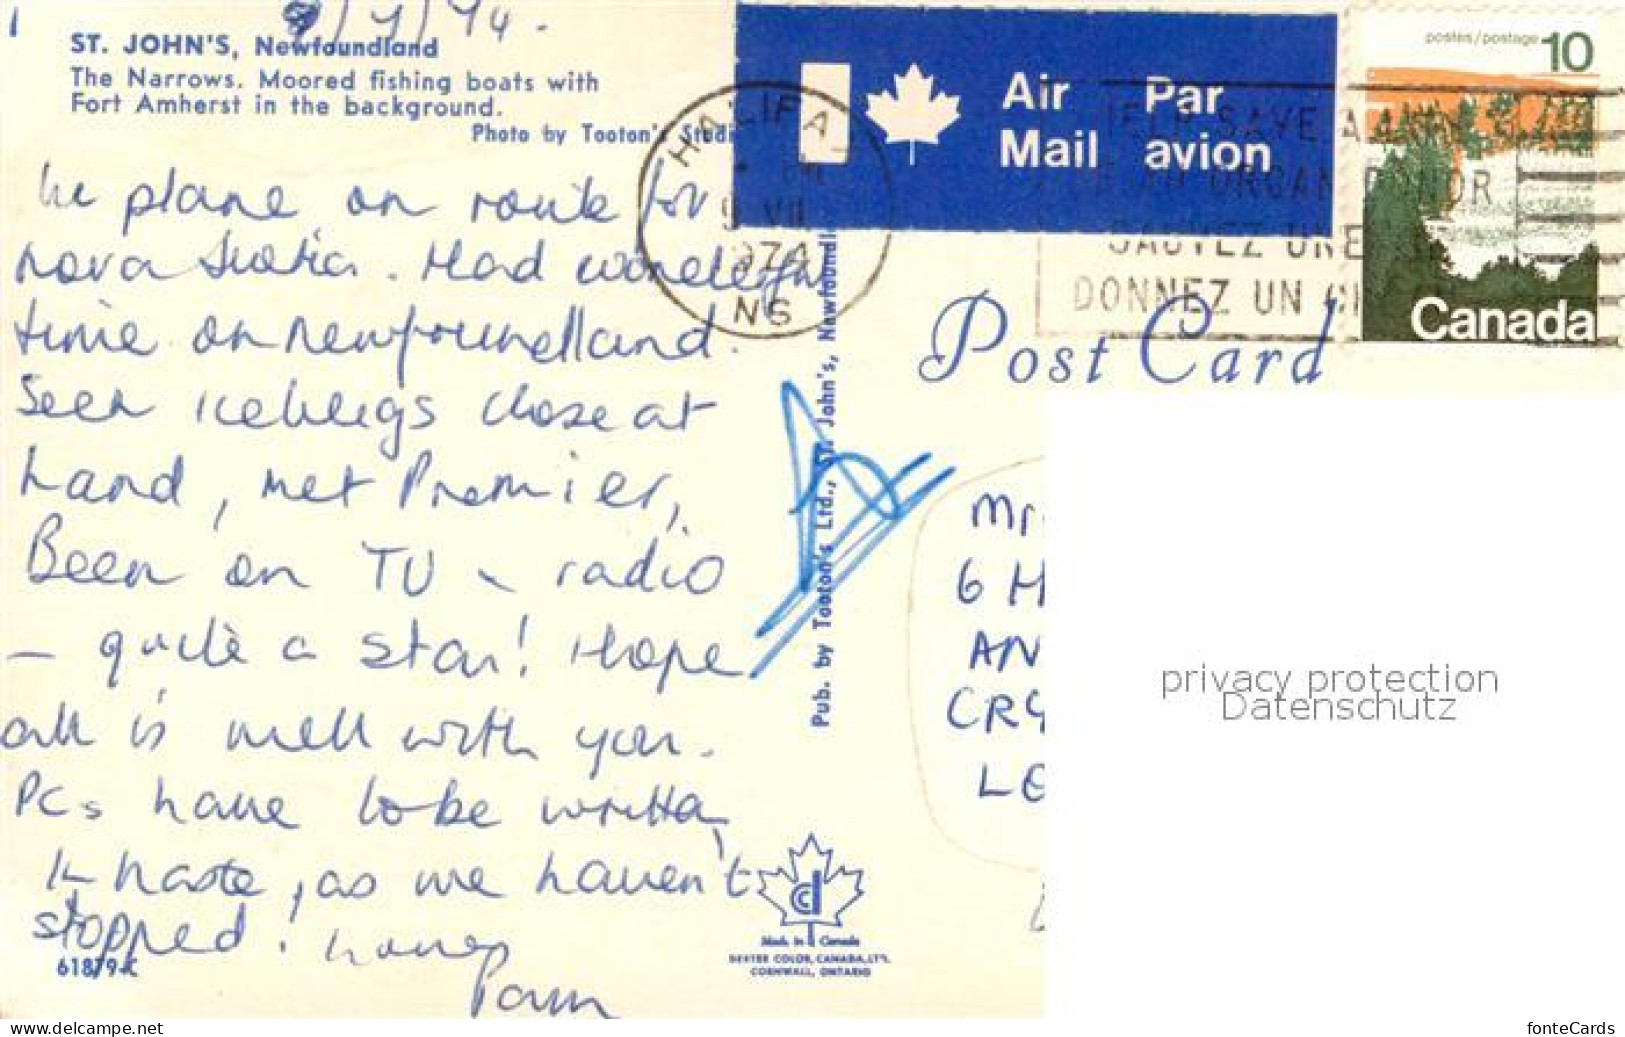 9/7/74.
ST. JOHN'S, Newfoundland
The Narrows. Moored fishing boats with
Fort Amherst in the background.
Photo by Tooton's Studi
Air Mail
Par avion
postes/postage 10
Canada
HALIFA
PM
9 VII
1974
NS
HELP SAVE A
BE AN ORGAN DONOR
SAUVEZ UNE
DONNEZ UN
Post Card
In plane on route for
Nova Scotia. Had wonderful
time on Newfoundland.
Seen icebergs close at
hand, met Premier,
Been on TV & radio
- quite a star! Hope
all is well with you.
PCs have to be written
in haste, as we haven't
stopped! Love
Pam
61879-C
Pub. by Tooton's Ltd., St. John's, Newfoundland
Made in Canada
DEXTER COLOR, CANADA, LTD.
CORNWALL, ONTARIO
Mr
6 H
AN
CRY
LE
privacy protection
Datenschutz
www.delcampe.net
fonteCards